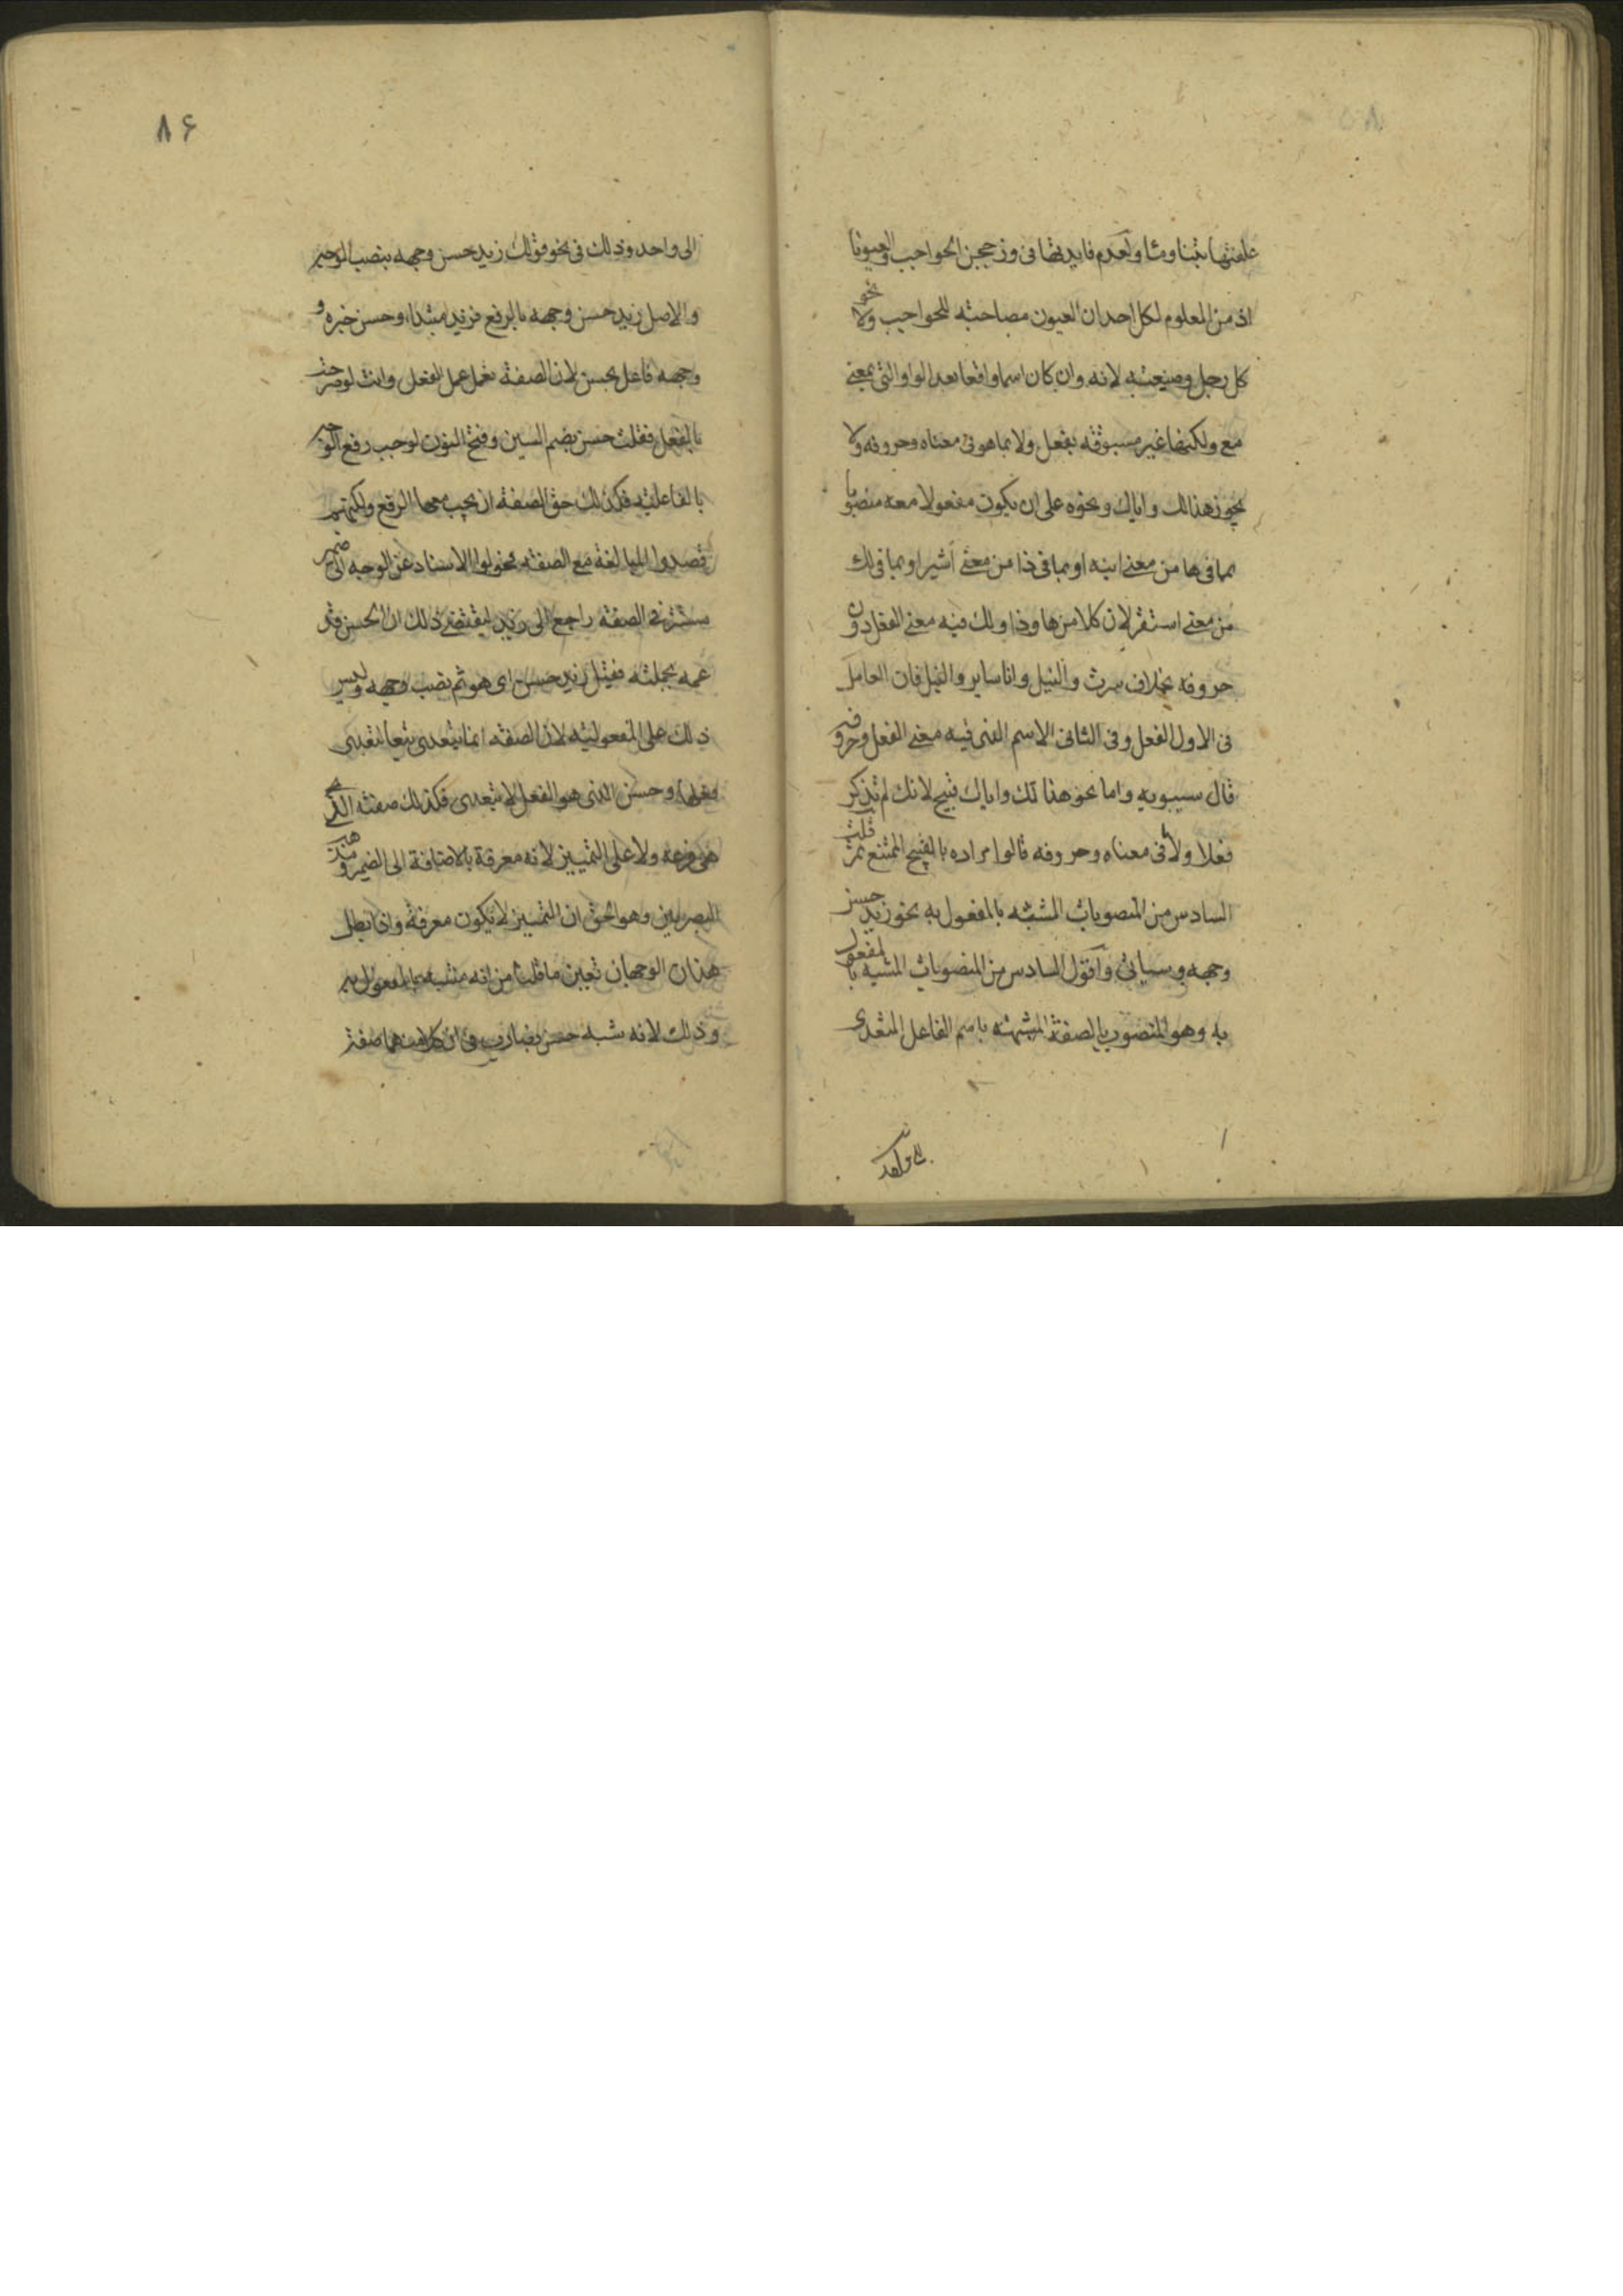 علفتها تبنا وماء ولعدم فايدتها فى وزججن الحواجب والعيونا
اذ من المعلوم لكل احد ان العيون مصاحبة للحواجب ولا نحو
كل رجل وضيعته لانه وان كان اسما واقعا بعد الواو التى بمعنى
مع ولكنها غير مسبوقة بفعل ولا بما هو فى معناه وحروفه ولا
يجوز هذا لك واباك ونحوه على ان يكون مفعولا معه منصوبا
بما فى ها من معنى انبه او بما فى ذا من معنى اشير او بما فى لك
من معنى استقر لان كلا من ها وذا ولك فيه معنى الفعل دون
حروفه بخلاف سرت والنيل وانا ساير والنيل فان العامل
فى الاول الفعل وفى الثانى الاسم الذى فيه معنى الفعل وحروفه
قال سيبويه واما نحو هذا لك واباك فقبيح لانك لم تذكر
فعلا ولا فى معناه وحروفه قالوا مراده بالقبيح الممتنع ثم قلت
السادس من المنصوبات المشبه بالمفعول به نحو زيد حسن
وجهه وسياتى واقول السادس من المنصوبات المشبه بالمفعول
به وهو المنصوب بالصفة المشبهة باسم الفاعل المتعدى
الى واحد
٨۶
الى واحد وذلك فى نحو قولك زيد حسن وجهه بنصب الوجه
والاصل زيد حسن وجهه بالرفع فزيد مبتدا وحسن خبره و
وجهه فاعل بحسن لان الصفة تعمل عمل الفعل وانت لو صرحت
بالفعل فقلت حسن بضم السين وفتح النون لوجب رفع الوجه
بالفاعلية فكذلك حق الصفة ان يجب معها الرفع ولكنهم
قصدوا المبالغة مع الصفة فحولوا الاسناد عن الوجه الى ضمير
مستتر فى الصفة راجع الى زيد ليقتضى ذلك ان الحسن قد
عمه بجملته فقيل زيد حسن اى هو ثم نصب وجهه وليس
ذلك على المفعولية لان الصفة انما تتعدى تبعا لتعدى
فعلها وحسن الذى هو الفعل لا يتعدى فكذلك صفته التى
هى فرعه ولا على التمييز لانه معرفة بالاضافة الى الضمير ومذهب
البصريين وهو الحق ان التمييز لا يكون معرفة واذا بطل
هذان الوجهان تعين ما قلنا من انه مشبه بالمفعول به
وذلك لانه شبه حسن بضارب فى ان كلا منهما صفة